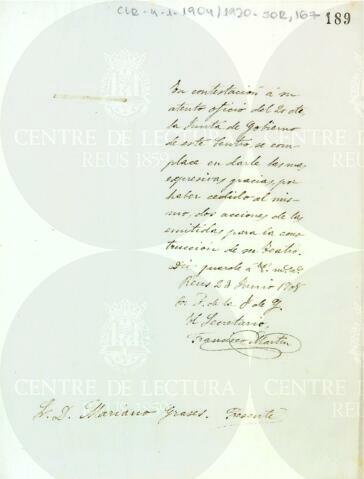 CLR-4-1-1904/1920-SOR,167
189
En contestación á su
atento oficio del 20 cte.
la Junta de Gobierno
de este Centro, se com-
place en darle las mas
expresivas gracias por
haber cedido al mis-
mo, dos acciones de las
emitidas para la cons-
trucción de su Teatro.
Dios guarde á V. m. as.
Reus 23 Junio 1908
P. de la J. de G.
El Secretario,
Francisco Martín
S. D. Mariano Grases. Presente
CENTRE DE LECTURA
REUS 1859
CENTRE DE LECTURA
REUS 1859